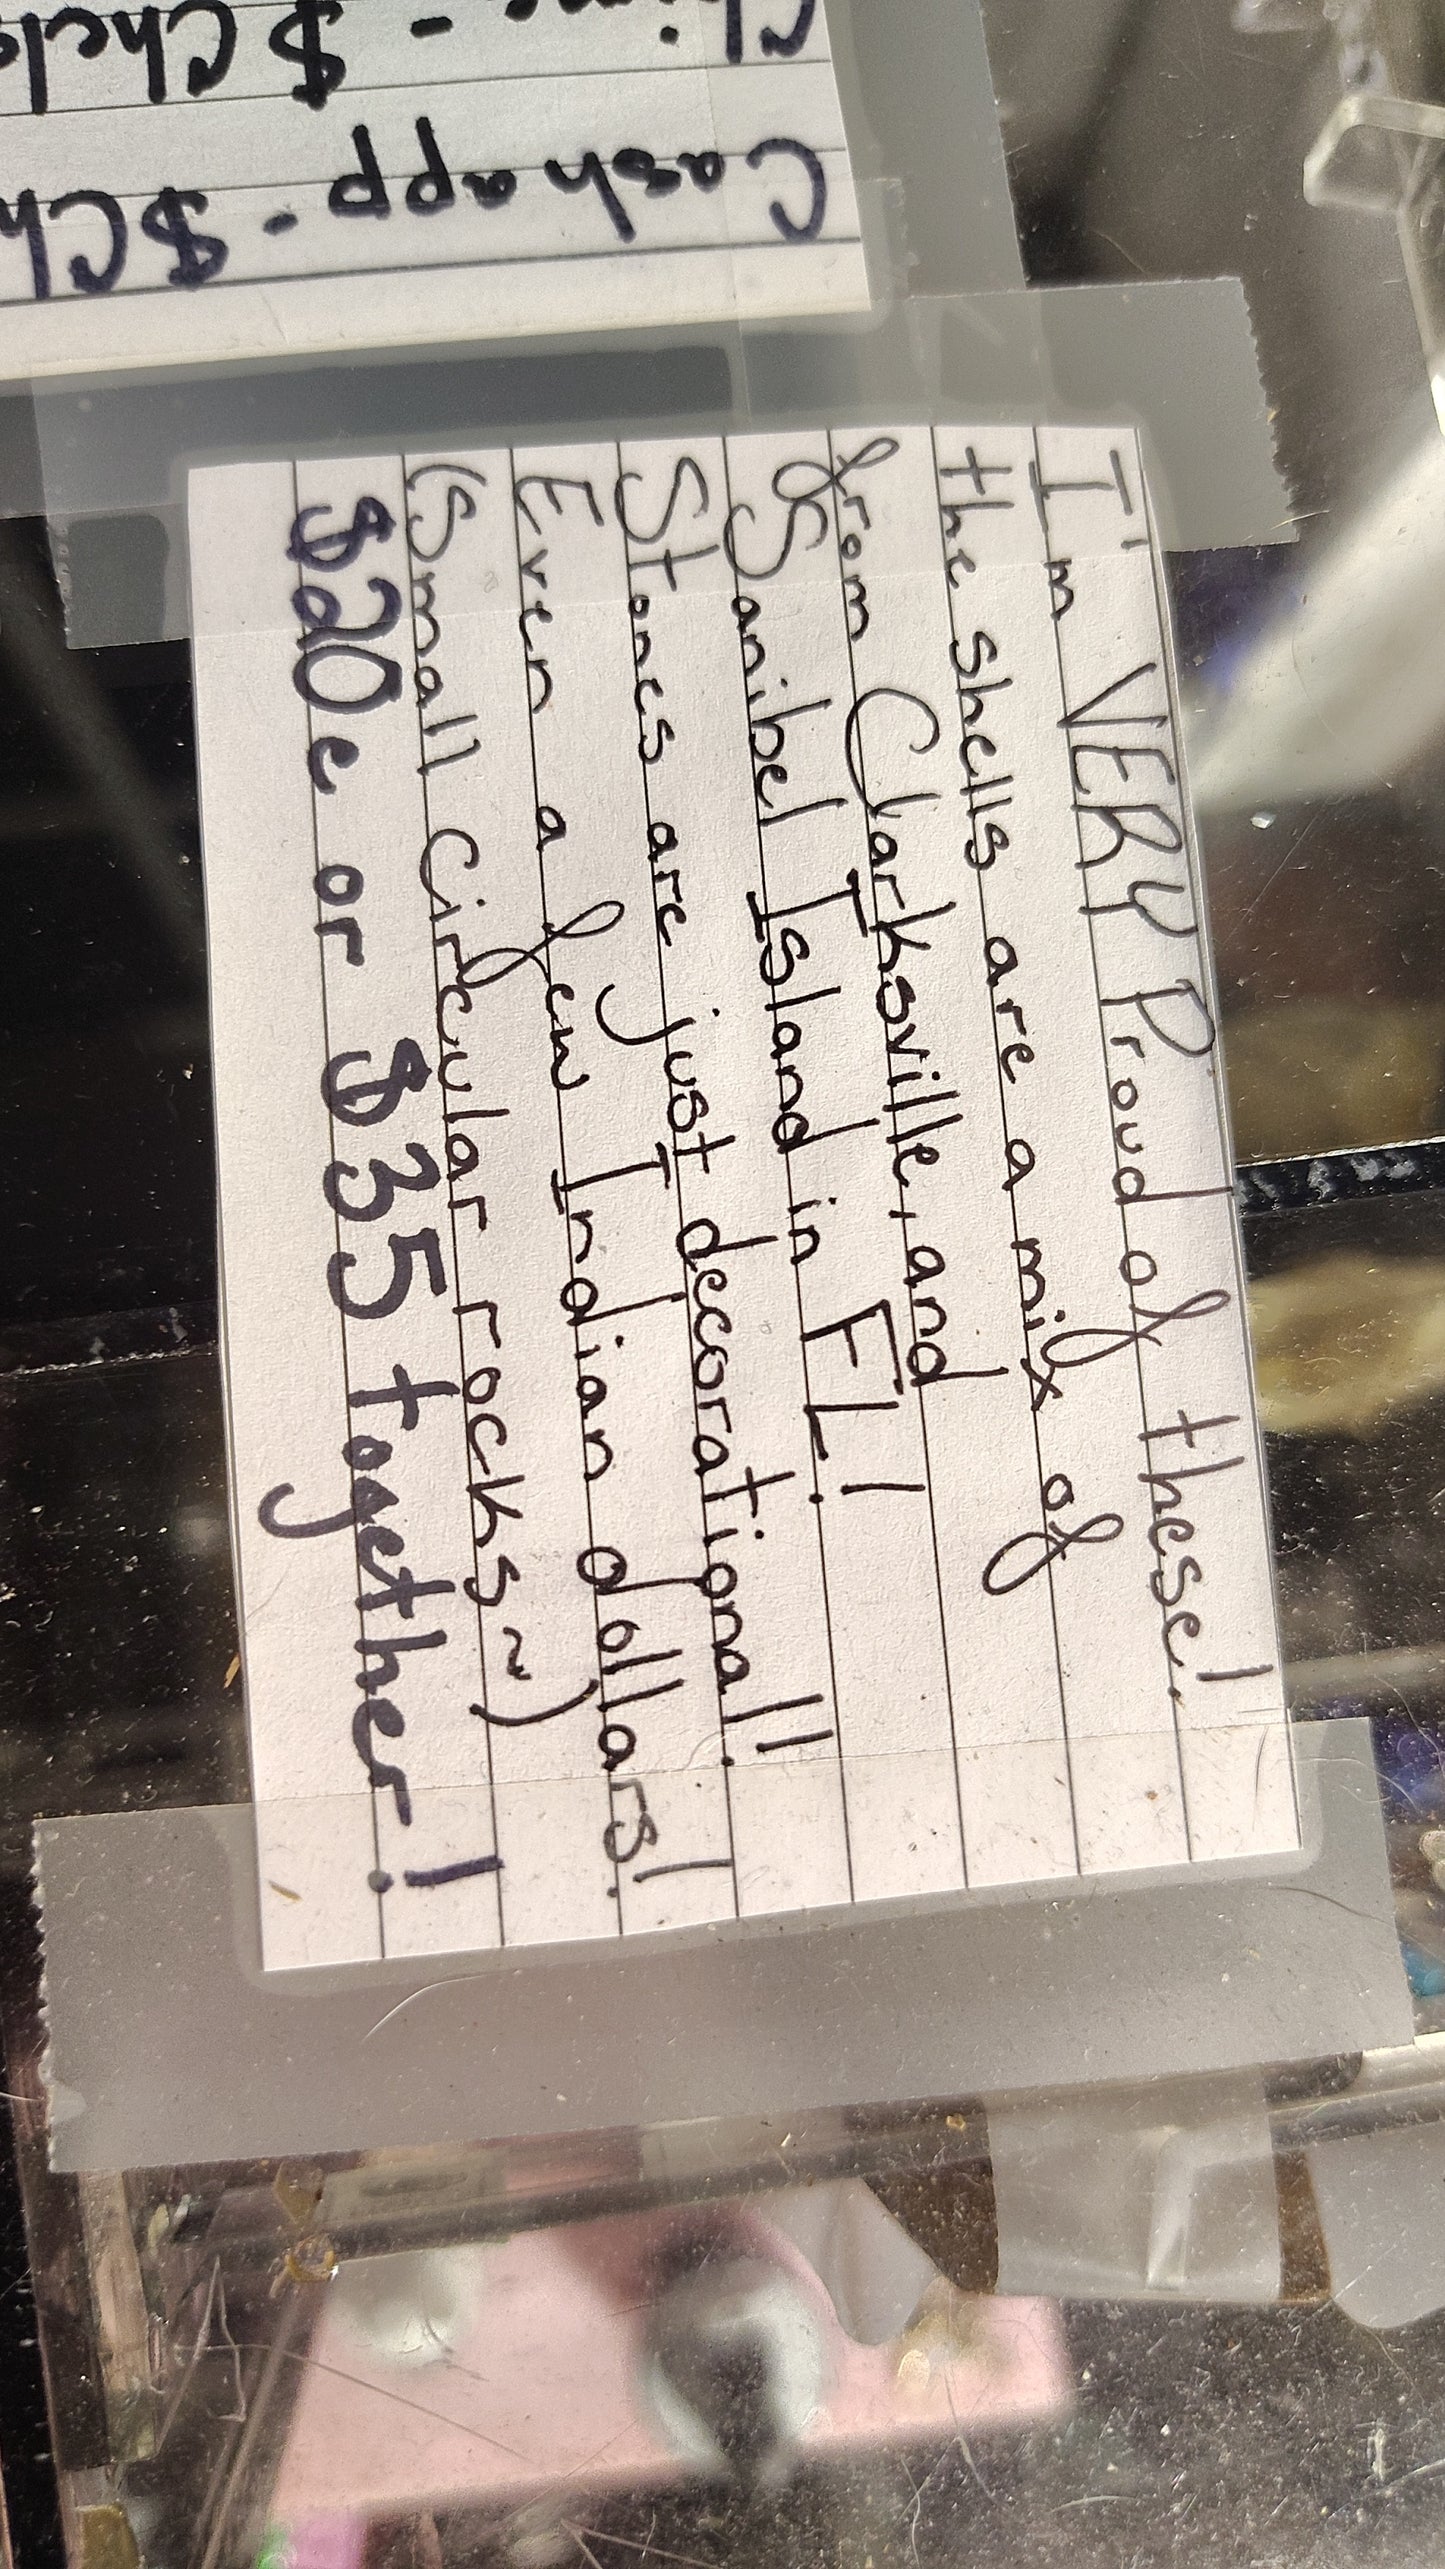 Chime - $Chels
Cash app - $Ch
I'm VERY Proud of these!
the shells are a mix of
from Clarksville, and
Sanibel Island in FL!
Stones are just decorational!
Even a few Indian dollars!
(Small Circular rocks~)
$20e or $35 together!